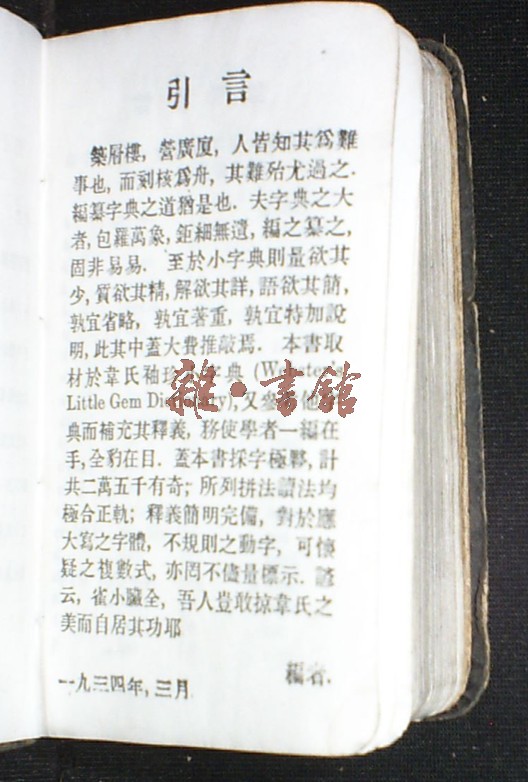 引言
築層樓, 營廣廈, 人皆知其爲難
事也, 而刻核爲舟, 其難殆尤過之.
編纂字典之道猶是也. 夫字典之大
者, 包羅萬象, 鉅細無遺, 編之纂之,
固非易易. 至於小字典則量欲其
少, 質欲其精, 解欲其詳, 語欲其簡,
孰宜省略, 孰宜著重, 孰宜特加說
明, 此其中蓋大費推敲焉. 本書取
材於韋氏袖珍字典 (Webster's
Little Gem Dictionary), 又參他
典而補充其釋義, 務使學者一編在
手, 全豹在目. 蓋本書採字極夥, 計
共二萬五千有奇; 所列拼法讀法均
極合正軌; 釋義簡明完備, 對於應
大寫之字體, 不規則之動字, 可懷
疑之複數式, 亦罔不儘量標示. 諺
云, 雀小臟全, 吾人豈敢掠韋氏之
美而自居其功耶
編者.
一九三四年, 三月
雜·書館